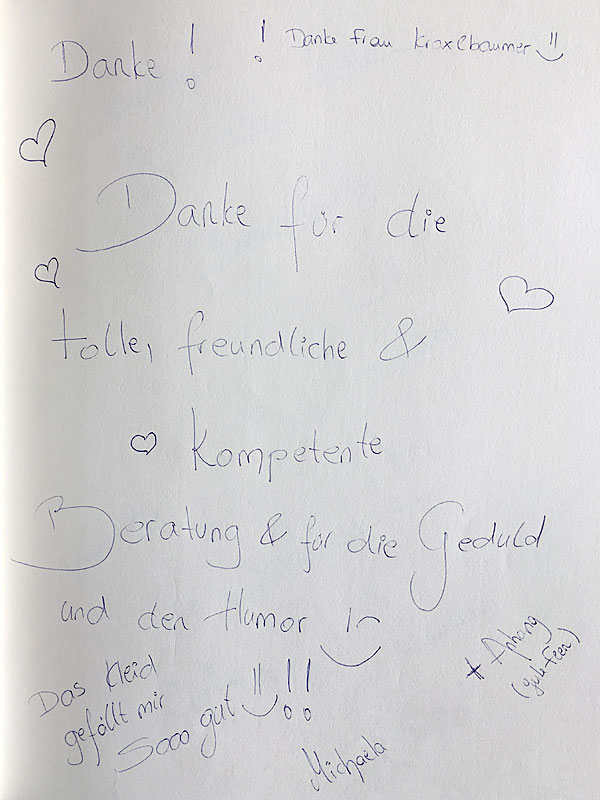 Danke! ! Danke Frau Kroxelbaumer
Danke für die
tolle, freundliche &
kompetente
Beratung & für die Geduld
und den Humor
Das Kleid
gefällt mir
Sooo gut !!
Michaela
+ Anhang